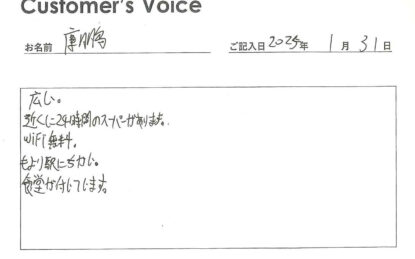 Customer's Voice
お名前 ご記入日 2025年 1月31日
広い。
近くに24時間のスーパーがあります。
WiFi無料。
もより駅にちかい。
食堂が付いています。